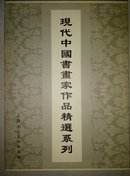 現代中國書畫家作品精選系列